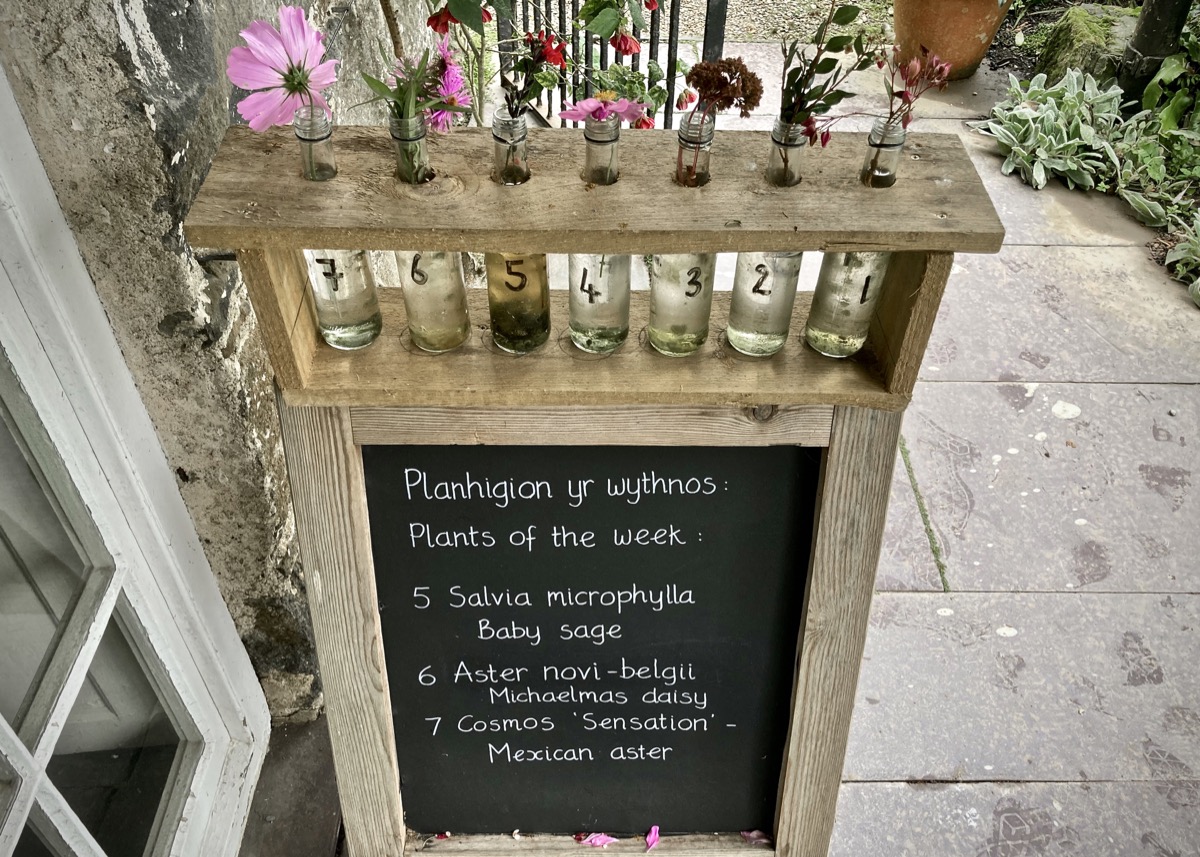 7 6 5 4 3 2 1
Planhigion yr wythnos:
Plants of the week:
5 Salvia microphylla
Baby sage
6 Aster novi-belgii
Michaelmas daisy
7 Cosmos 'Sensation' -
Mexican aster